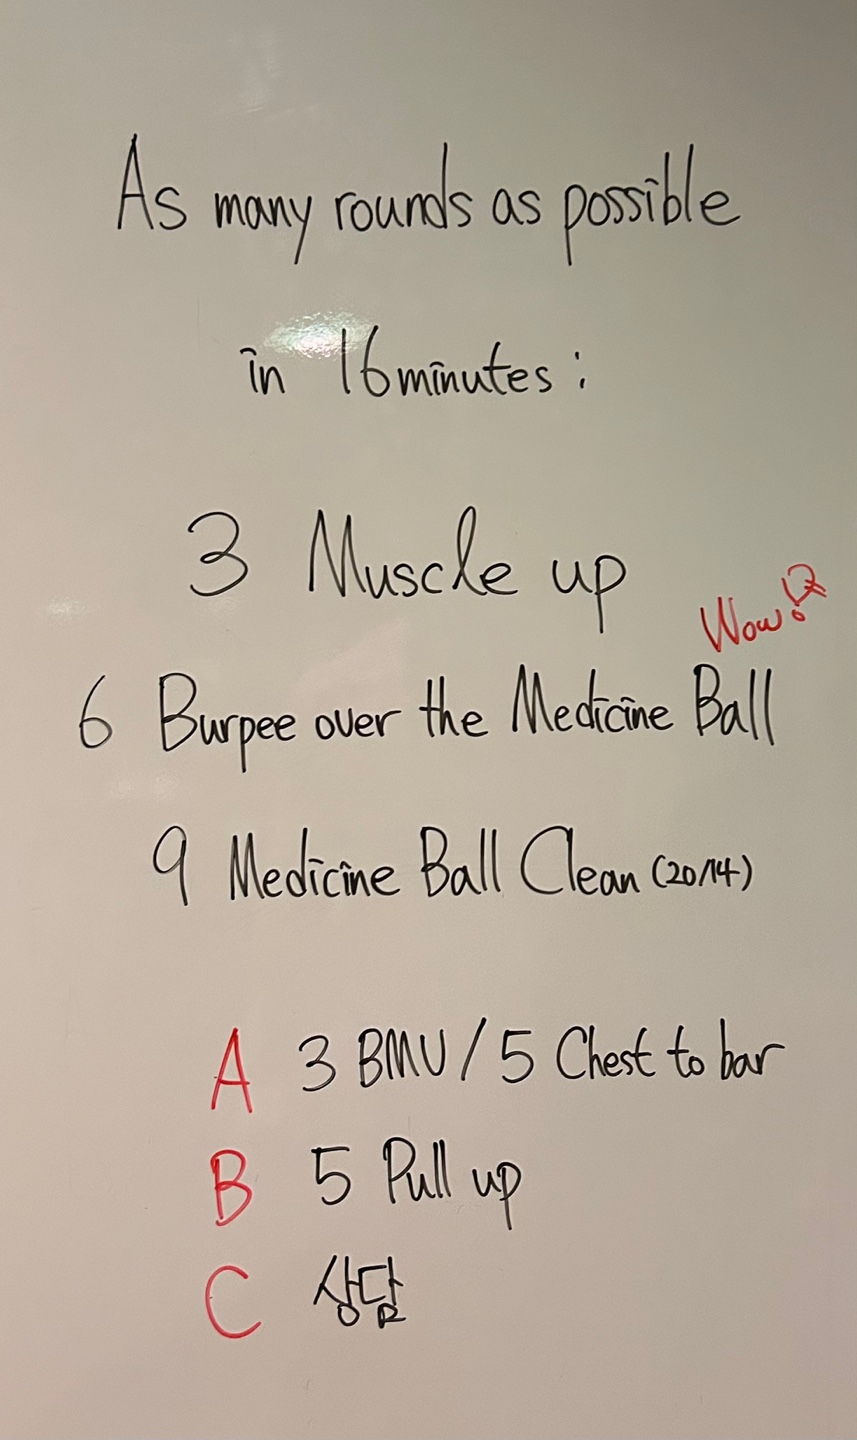 As many rounds as possible
in 16 minutes :
3 Muscle up
Wow!?
6 Burpee over the Medicine Ball
9 Medicine Ball Clean (20/14)
A 3 BMU / 5 Chest to bar
B 5 Pull up
C 상담